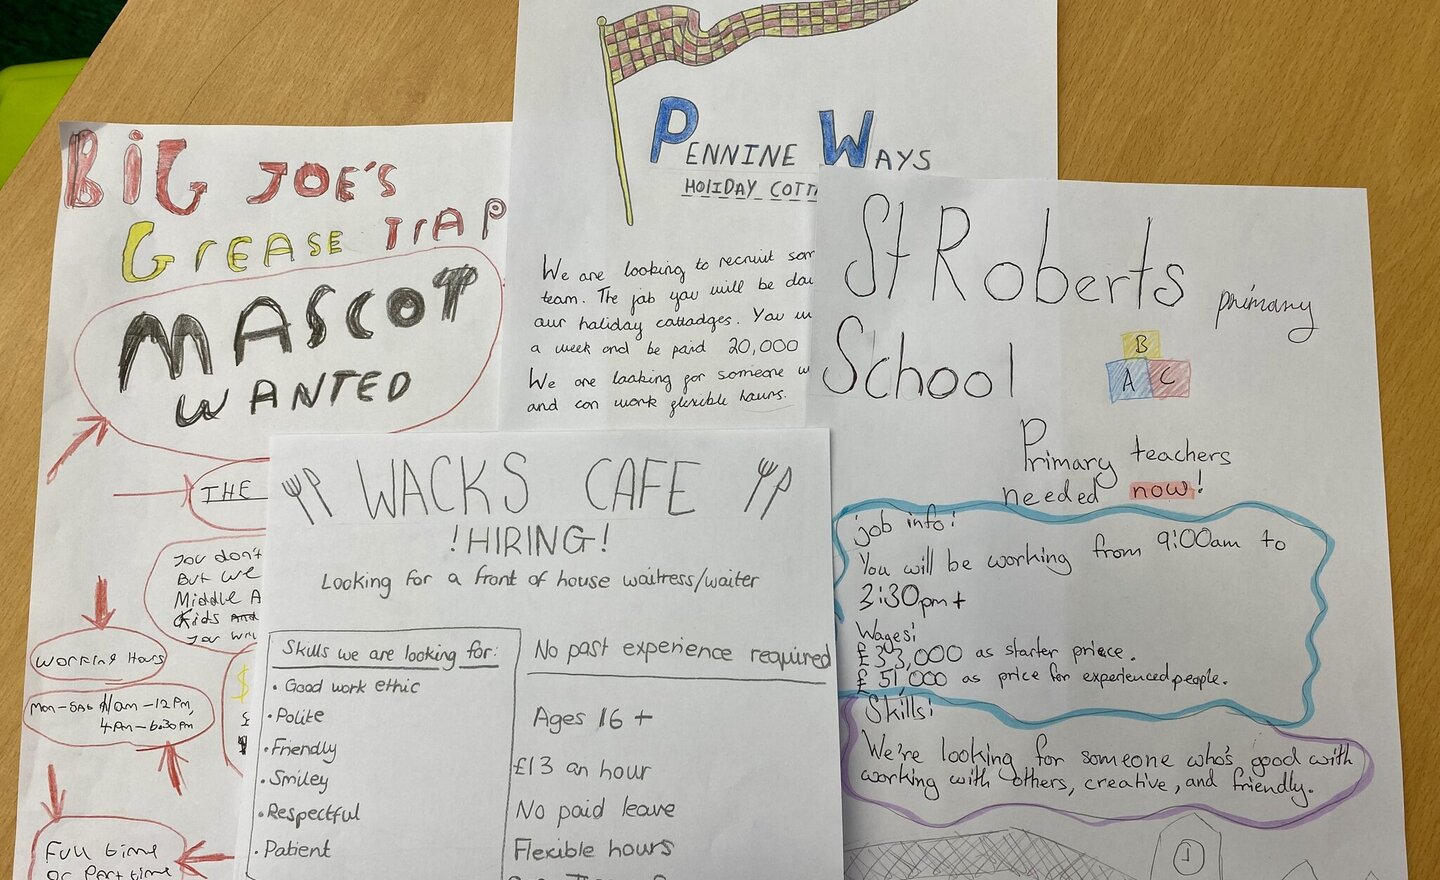 BIG JOE'S
GREASE TRAP
MASCOT
WANTED
THE
You don't
But we
Middle A
Kids
you
Working Hours
Mon-Sat 11am-12pm,
4pm-6:30pm
$
£
Full time
or Part time
PENNINE WAYS
HOLIDAY COTT
We are looking to recruit som
team. The job you will be doi
our holiday cottadges. You w
a week and be paid 20,000
We are looking for someone w
and can work flexible hours.
WACKS CAFE
!HIRING!
Looking for a front of house waitress/waiter
Skills we are looking for:
• Good work ethic
• Polite
• Friendly
• Smiley
• Respectful
• Patient
No past experience required
Ages 16+
£13 an hour
No paid leave
Flexible hours
St Roberts primary
School
B
A C
Primary teachers
needed now!
job info:
You will be working from 9:00am to
3:30pm+
Wages:
£33,000 as starter priece.
£51,000 as price for experienced people.
Skills:
We're looking for someone who's good with
working with others, creative, and friendly.
1